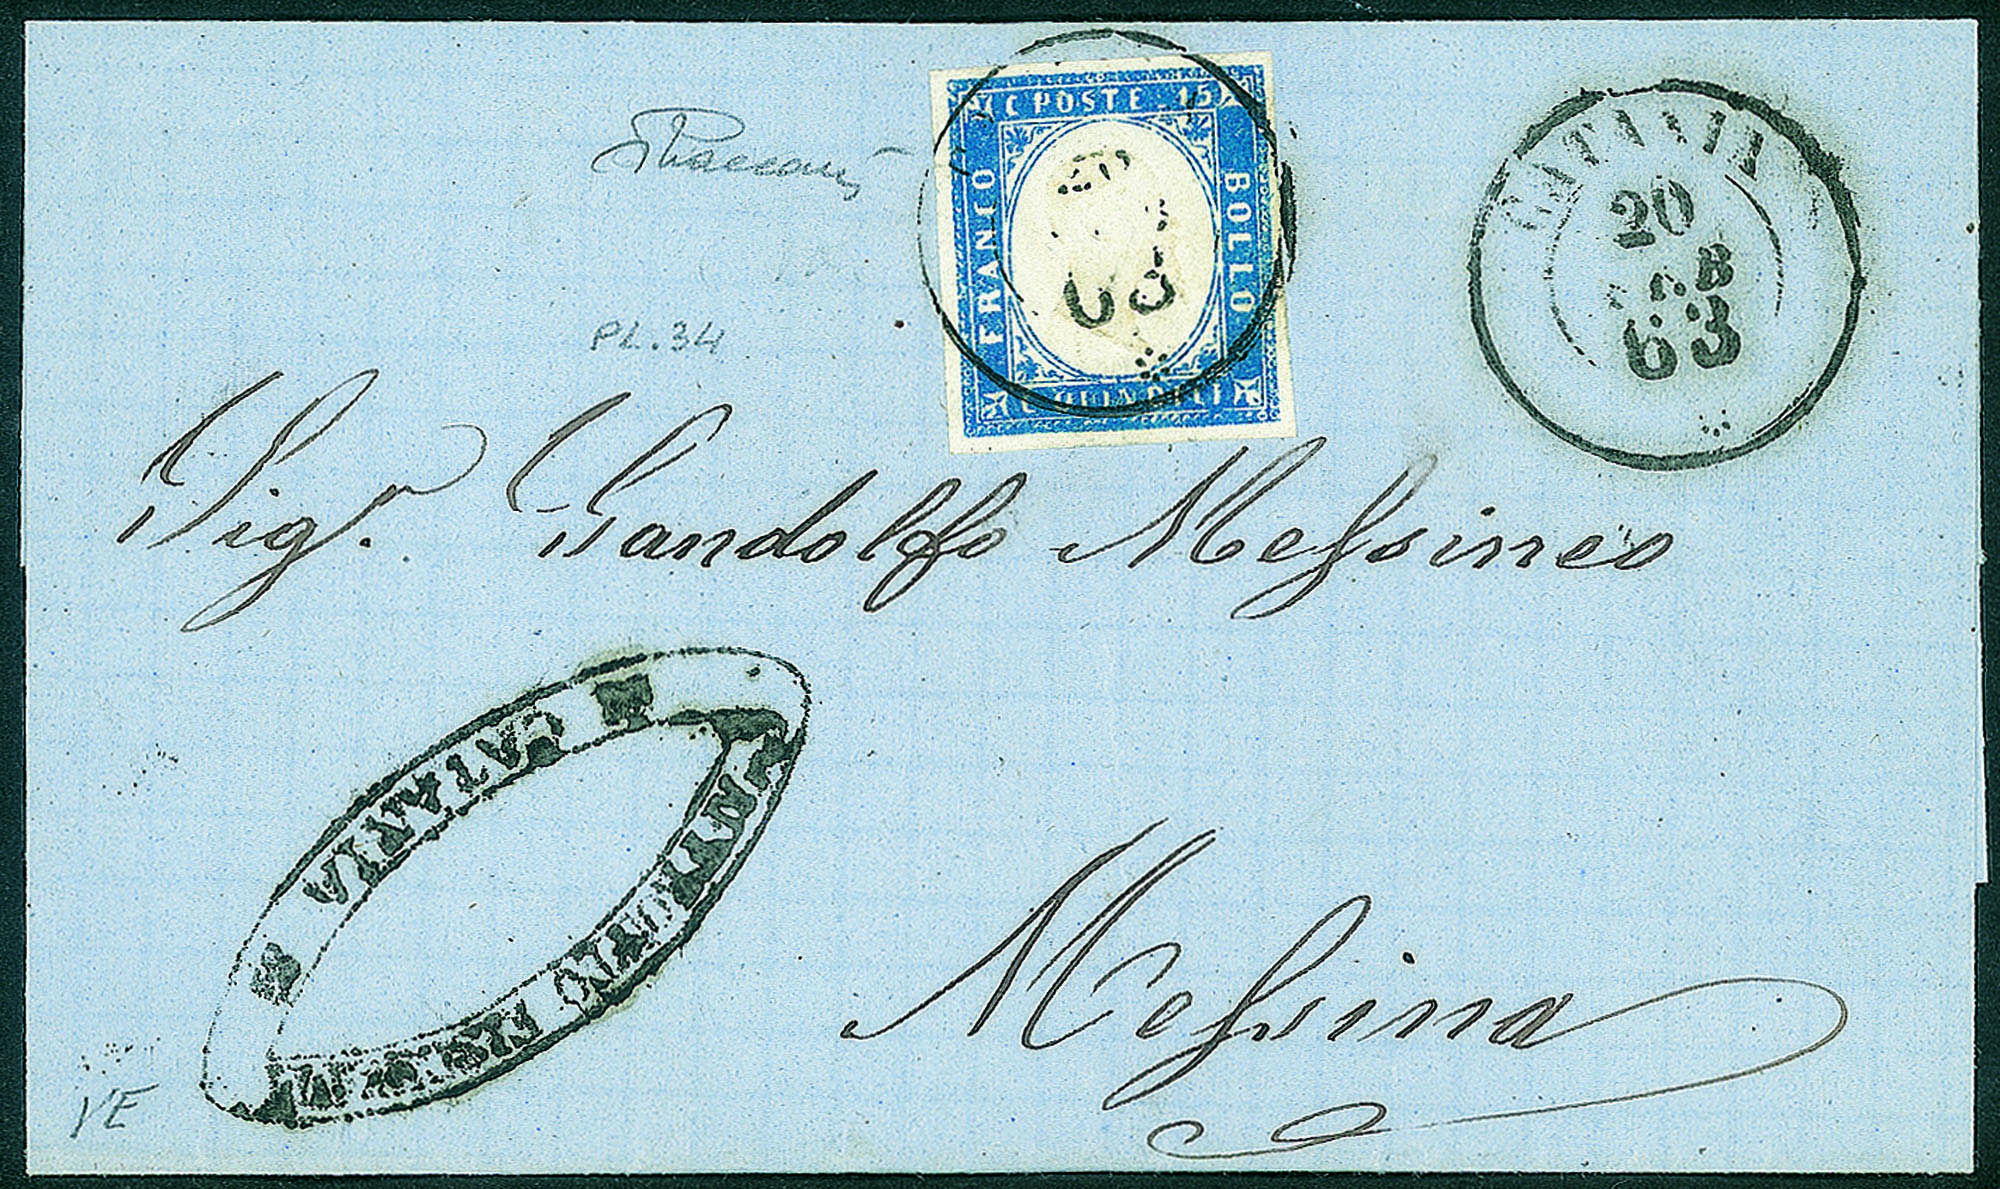 C POSTE 15
FRANCO
BOLLO
C QUINDICI
63
CATANIA
20
63
PL.34
Sig.r Gandolfo Messineo
CATANIA
Messina
VE